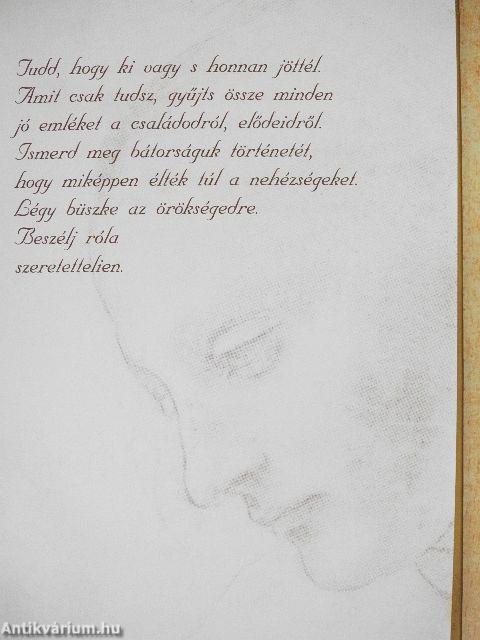 Tudd, hogy ki vagy s honnan jöttél.
Amit csak tudsz, gyűjts össze minden
jó emléket a családodról, elődeidről.
Ismerd meg bátorságuk történetét,
hogy miképpen élték túl a nehézségeket.
Légy büszke az örökségedre.
Beszélj róla
szeretettelien.
Antikvárium.hu